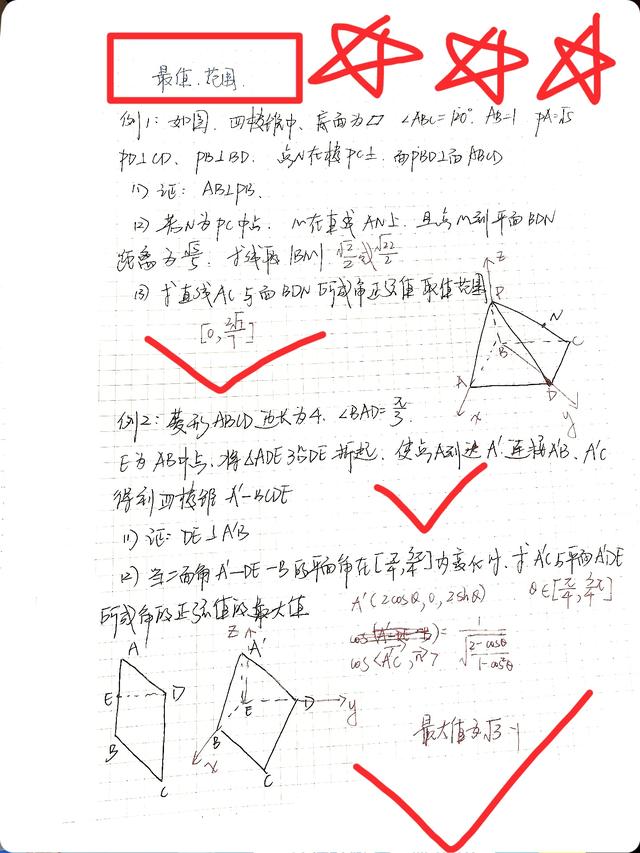 最值.范围.
例1:如图.四棱锥中、底面为▱ ∠ABC=120°. AB=1 PA=√5
PD⊥CD、PB⊥BD. 点N在棱PC上.面PBD⊥面ABCD
(1) 证: AB⊥PB.
(2) 若N为PC中点. M在直线AN上.且点M到平面BDN
距离为√5/5. 求线段|BM| √2/2 或 √22/2
(3) 求直线AC与面BDN所成角正弦值取值范围
[0, 2√7/7]
z
P
N
B
C
A
D
x
y
例2: 菱形ABCD边长为4. ∠BAD=π/3.
E为AB中点.将△ADE沿DE折起.使点A到达A'.连接A'B、A'C
得到四棱锥A'-BCDE
(1) 证: DE⊥A'B
(2) 当二面角A'-DE-B的平面角在[π/4, 3π/4]内变化时.求A'C与平面A'DE
所成角的正弦值的最大值
A'(2cosθ, 0, 2sinθ) θ∈[π/4, 3π/4]
cos<A'C, n> = 1
2-cosθ
1-cos²θ
A
E
D
B
C
z
A'
E
D
y
B
x
C
最大值为√3-1